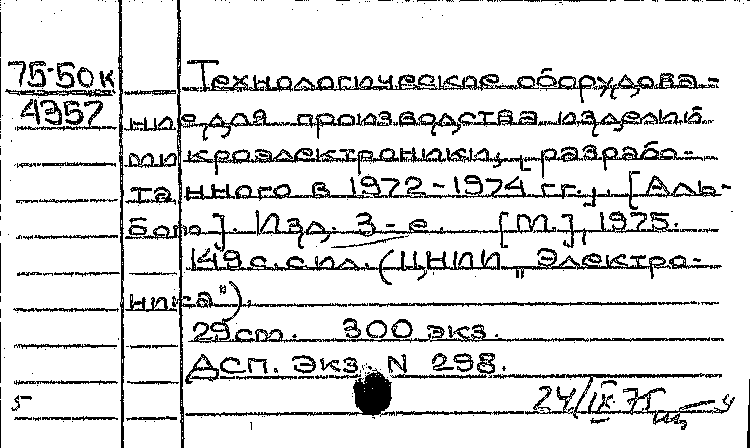 75-50к
4957
Технологическое оборудова-
ние для производства изделий
микроэлектроники, [разрабо-
танного в 1972-1974 гг.]. [Аль-
бом]. Изд. 3-е. [М.], 1975.
149 с. с ил. (ЦНИИ „Электро-
ника").
29 cm. 300 экз.
ДСП. Экз. N 298.
5
24/IX-75